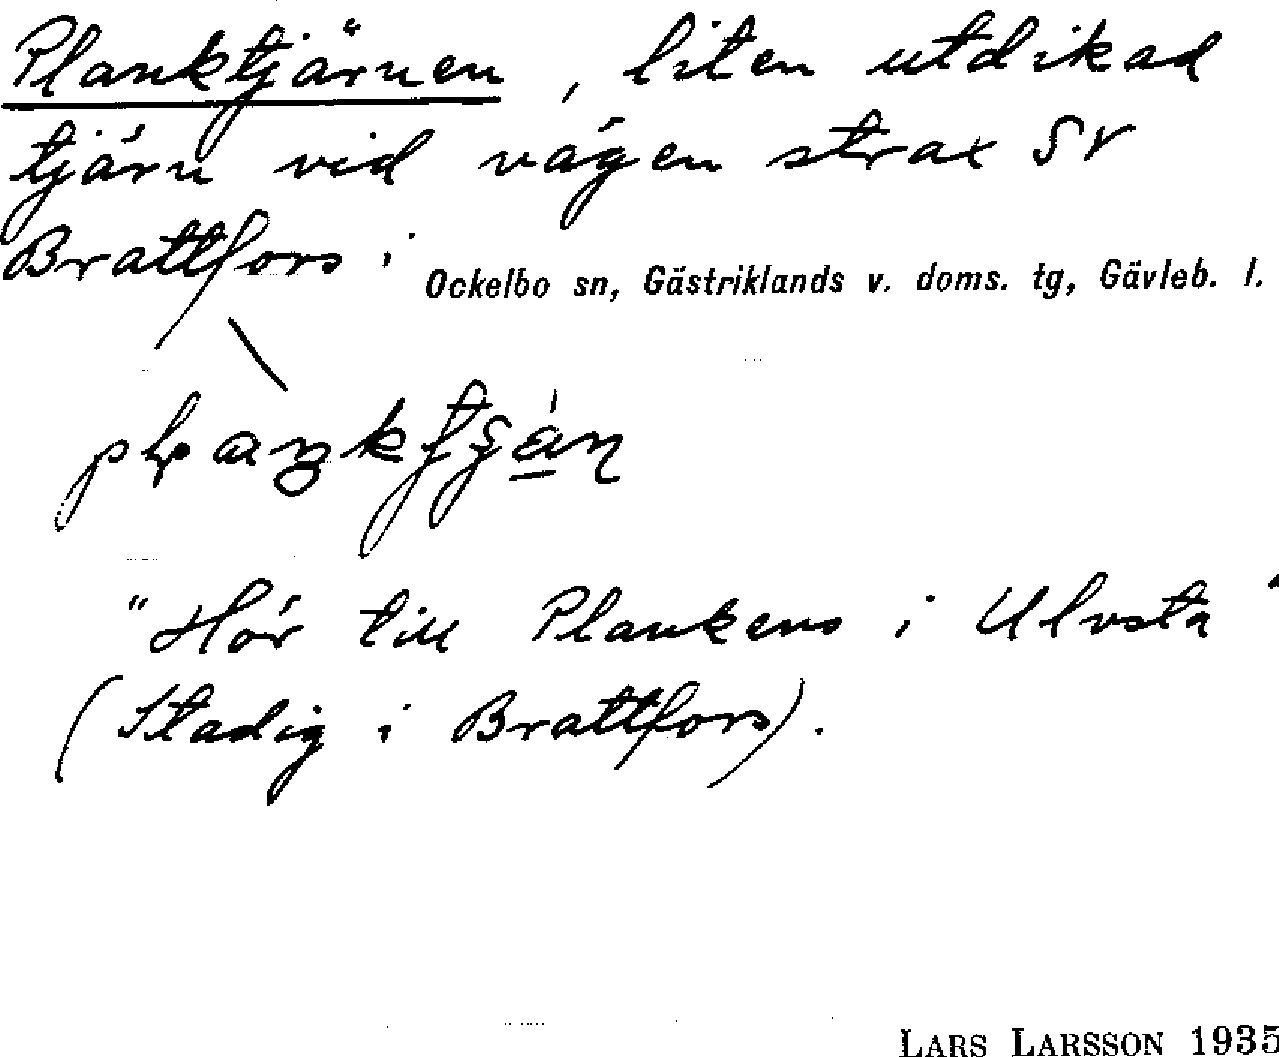 Planktjärnen, liten utdikad
tjärn vid vägen strax SV
Brattfors i Ockelbo sn, Gästriklands v. doms. tg, Gävleb. l.
"Hör till Plankens i Ulvsta"
(Stadig i Brattfors).
LARS LARSSON 1935